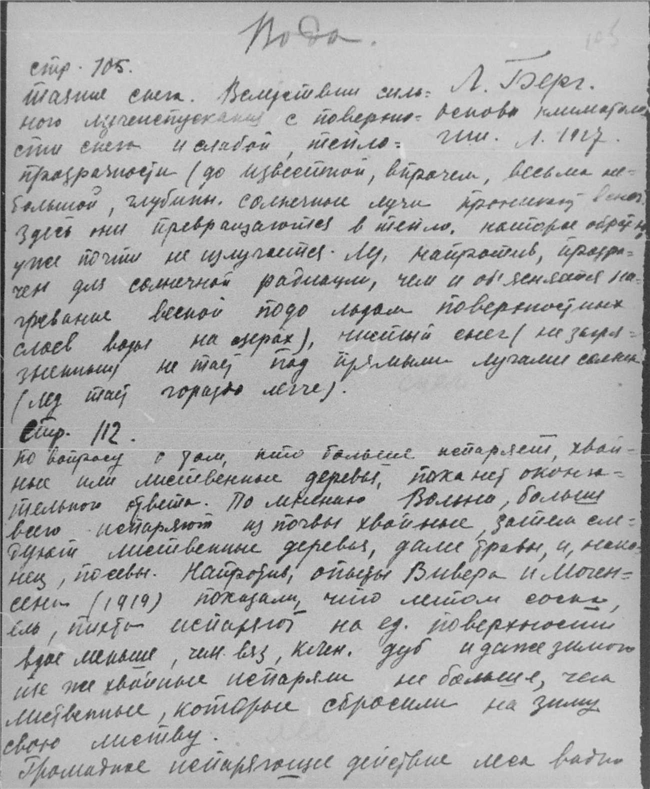 Вода.
105
стр. 105.
таяние снега. Вследствии силь= Л. Берг.
ного лучеиспускания с поверхно= основы климатоло
сти снега и слабой, тепло= гии. Л. 1927.
прозрачности (до известной, впрочем, весьма не=
большой, глубины. солнечные лучи проникают в снег.
Здесь они превращаются в тепло, которое обратно
уже почти не излучается. Лед, напротив, прозра=
чен для солнечной радиации, чем и об'ясняется на=
гревание весной подо льдом поверхностных
слоев воды на озерах), чистый снег (не загря=
зненный) не тает под прямыми лучами солнца
(лед тает гораздо легче).
Стр. 112.
По вопросу о том, что больше испаряет, хвой=
ные или лиственные деревья, пока нет оконча=
тельного ответа. По мнению Вольни, больше
всего испаряют из почвы хвойные, затем сле=
дуют лиственные деревья, далее травы, и, нако=
нец, посевы. Напротив, опыты Вивера и Моген=
сена (1919) показали, что летом сосна,
ель, пихта испаряют на ед. поверхности
вдвое меньше, чем вяз, клен. дуб и даже зимою
те же хвойные испаряли не больше, чем
лиственные, которые сбросили на зиму
свою листву.
Громадное испаряющее действие леса видно